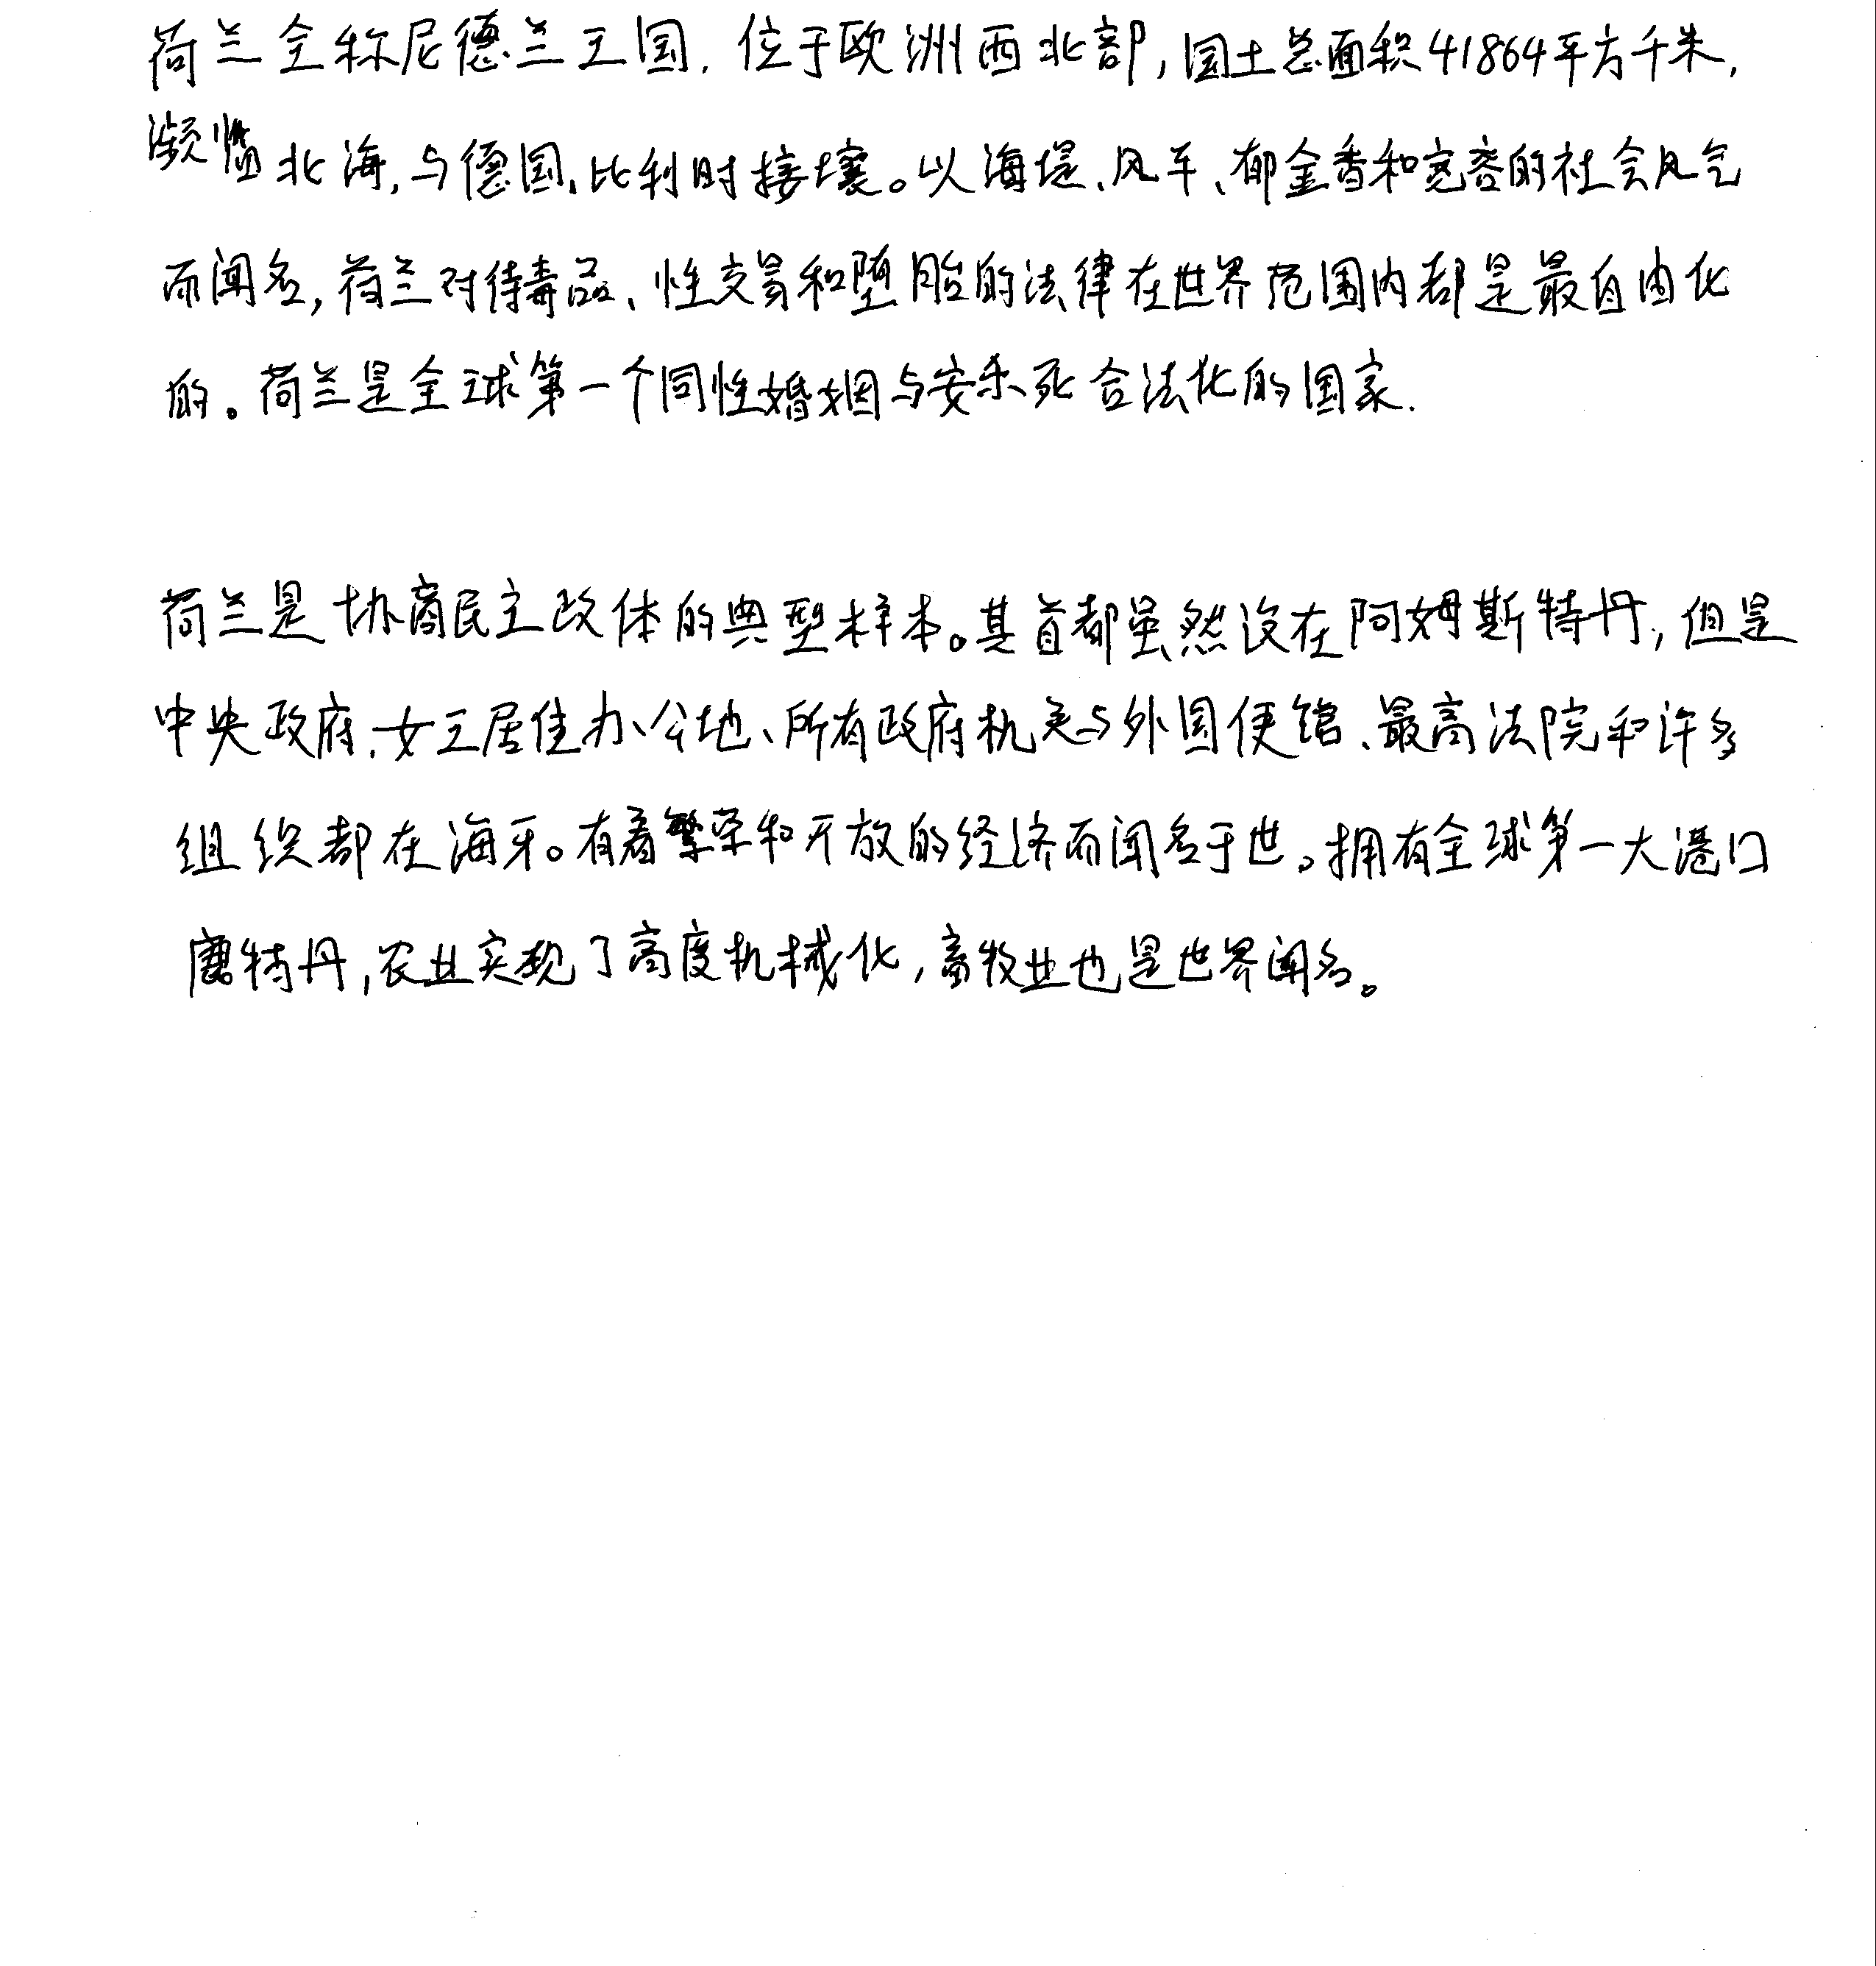 荷兰全称尼德兰王国，位于欧洲西北部，国土总面积41864平方千米，
濒临北海，与德国、比利时接壤。以海堤、风车、郁金香和宽容的社会风气
而闻名，荷兰对待毒品、性交易和堕胎的法律在世界范围内都是最自由化
的。荷兰是全球第一个同性婚姻与安乐死合法化的国家.
荷兰是协商民主政体的典型样本。其首都虽然设在阿姆斯特丹，但是
中央政府、女王居住办公地、所有政府机关与外国使馆、最高法院和许多
组织都在海牙。有着繁荣和开放的经济而闻名于世。拥有全球第一大港口
鹿特丹，农业实现了高度机械化，畜牧业也是世界闻名。